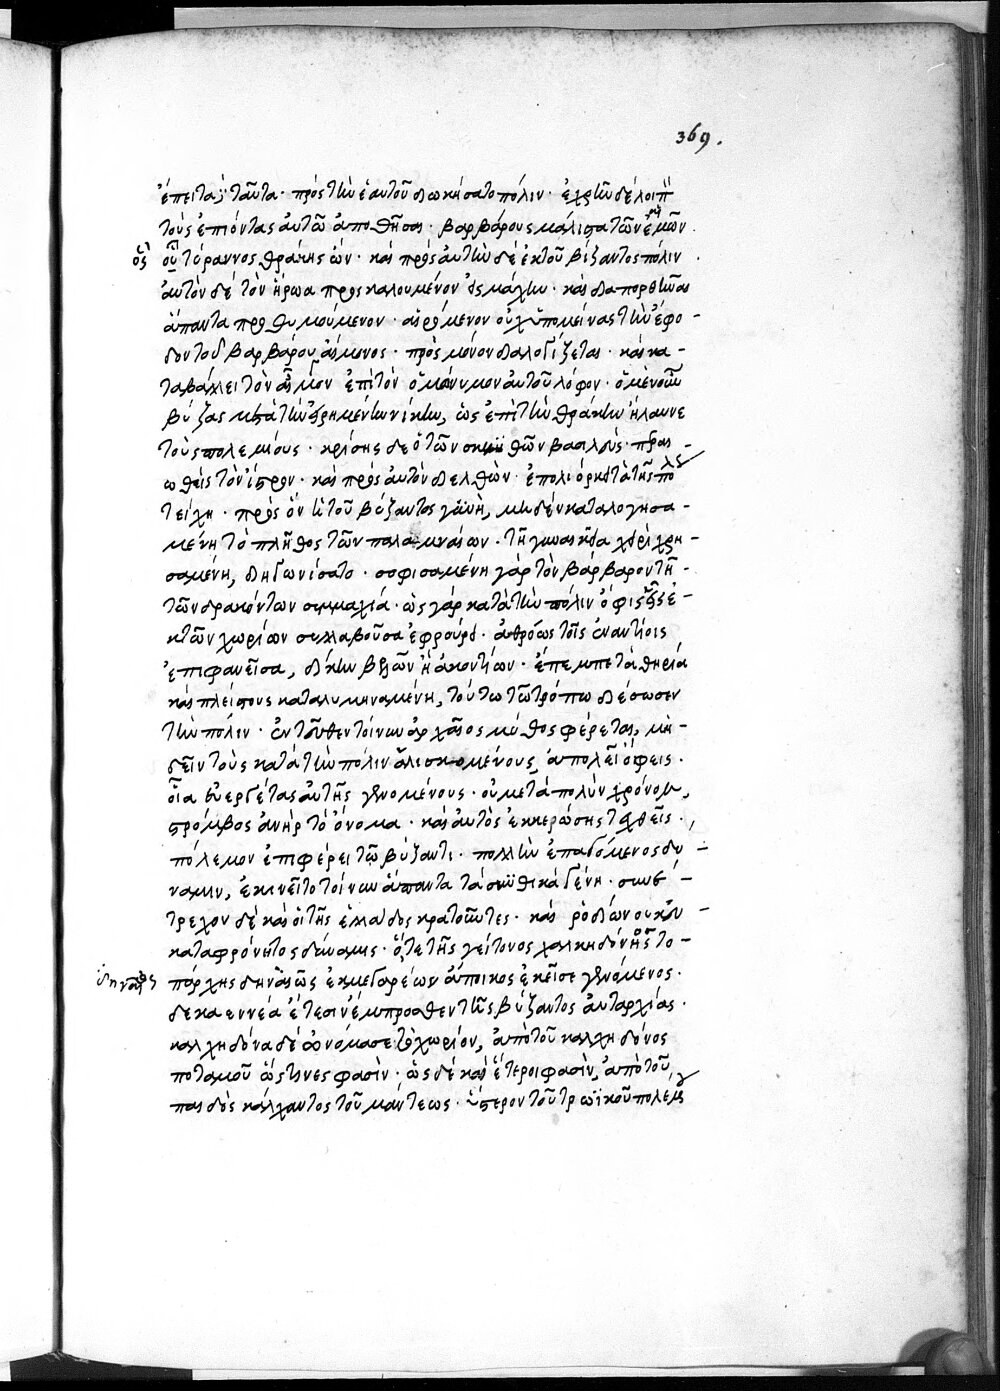 369.
ἔπειτα ταῦτα· πρὸς τὴν ἑαυτοῦ διωκήσατο πόλιν· ἐχρῆν δὲ λοιπὸν
τοὺς ἐπιόντας αὐτῶ ἀπωθῆσαι· βαρβάρους μάλιστα τῶν
ὃς τύραννος θράκης ὢν· καὶ πρὸς αὐτὴν δὲ ἐκ τοῦ βίζαντος πόλιν
αὐτὸν δὲ τὸν ἥρωα προσκαλουμένον εἰς μάχην· καὶ διαπορθῆσαι
ἅπαντα προθυμούμενον· οὐχ ὑπομείνας τὴν ἔφο-
δον τοῦ βαρβάρου αἷμονος· πρὸς μόνον διαλογίζεται· καὶ κα-
ταβάλλει τὸν αἷμον ἐπὶ τὸν ὁμώνυμον αὐτοῦ λόφον· ὁ μὲν οὖν
βύζας μετὰ τὴν εἰρημένην νίκην, ὡς ἐπὶ τὴν θράκην ἤλαυνε
τοὺς πολεμίους· δὲ ὁ τῶν σκυθῶν βασιλεὺς·
τὸν ἴστρον· καὶ πρὸς αὐτὸν διελθὼν· ἐπολιόρκει τὰ τῆς πόλεως
τείχη· πρὸς ὃν ἡ τοῦ βύζαντος γυνὴ, μηδὲν καταλογησα-
μένη τὸ πλῆθος τῶν παλαμναίων· τῆ γυναικεία χειρὶ χρη-
σαμένη, διηγωνίσατο· σοφισαμένη γὰρ τὸν βάρβαρον τῆ
τῶν δρακόντων συμμαχία· ὡς γὰρ κατὰ τὴν πόλιν ὄφεις
κ τῶν χωρίων συλλαβοῦσα ἐφρούρει· ἀθρόως τοῖς ἐναντίοις
ἐπιφανεῖσα, δίκην βελῶν ἢ ἀκοντίων· ἔπεμπε τὰ θηρία
καὶ πλείστους καταλυμηναμένη, τούτω τῶ τρόπω διέσωσεν
τὴν πόλιν· ἐντεῦθεν τοίνυν ἀρχαῖος μύθος φέρεται, μὴ
δεῖν τοὺς κατὰ τὴν πόλιν ἁλισκομένους, ἀπολεῖν ὄφεις·
οἷα εὐεργέτας αὐτῆς γενομένους· οὐ μετὰ πολὺν χρόνον,
στρόμβος ἀνὴρ τὸ ὄνομα· καὶ αὐτὸς ἐκ κερώσης ταχθεὶς·
πόλεμον ἐπιφέρει τῷ βύζαντι· πολλὴν ἐπαγόμενος δύ-
ναμιν, ἐκινεῖτο τοίνυν ἅπαντα τὰ σκυθικὰ γένη· συνέ-
τρεχον δὲ καὶ οἱ τῆς ἑλλάδος κρατοῦντες· καὶ ῥοδίων οὐκ
καταφρόνητος δύναμις· ὅ, τε τῆς γείτονος χαλκηδόνος το-
πάρχης δηναῖος ὡς ἐκ μεγαρέων ἄποικος ἐκεῖσε γενόμενος·
δεκαεννέα ἔτεσιν ἔμπροσθεν τῆς βύζαντος αὐταρχίας·
καλχηδόνα δὲ ὠνόμασε τὸ χωρίον, ἀπὸ τοῦ καλχηδόνος
ποταμοῦ ὥς τινες φασὶν· ὡς δὲ καὶ ἕτεροι φασὶν, ἀπὸ τοῦ
παιδὸς κάλχαντος τοῦ μάντεως· ὕστερον τοῦ τρωϊκοῦ πολέμου